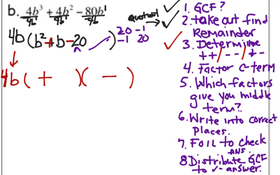 b. 4b³/4b + 4b²/4b - 80b¹/4b
quotient
4b(b² + b - 20)
20 -1
-1 20
4b( + )( - )
1. GCF?
2. take out find Remainder
3. Determine
++/--/+-
4. Factor c-term
5. Which factors give you middle term?
6. Write into correct places.
7. Foil to check ans.
8. Distribute GCF to ✓ answer.